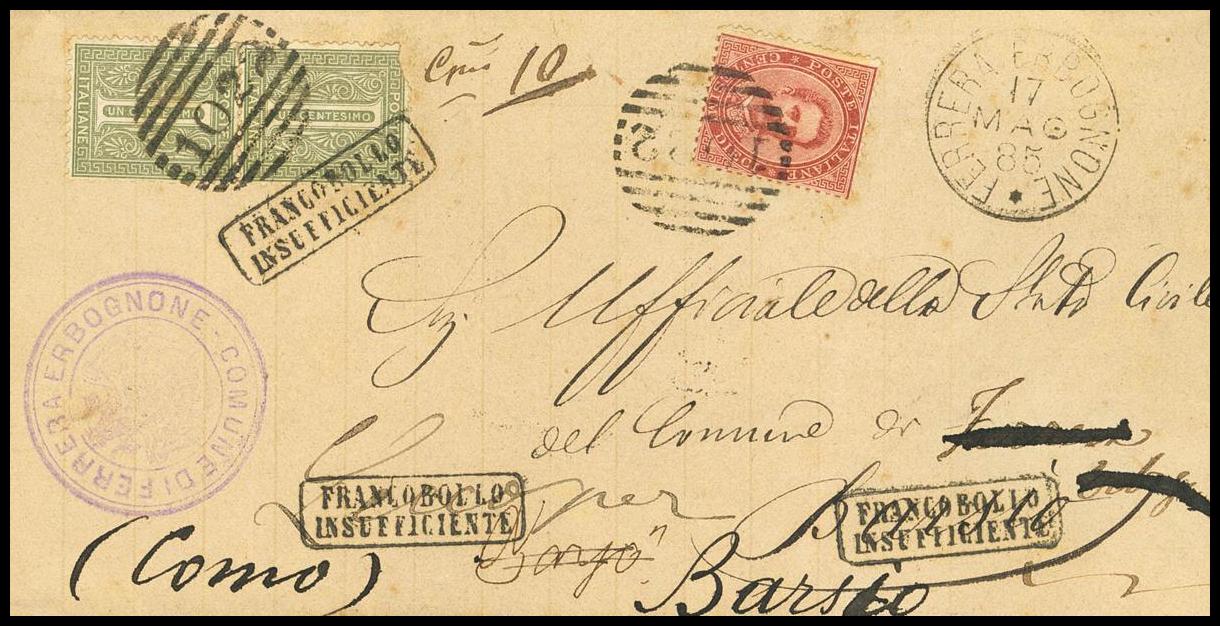 POSTE ITALIANE
UN CENTESIMO
1
CENTESIMO
1023
Cmi 10
POSTE ITALIANE
CENT. DIECI
FERRERA ERBOGNONE
17
MAG
85
FRANCOBOLLO
INSUFFICIENTE
Sig. Ufficiale dello Stato Civile
del Comune di
COMUNE DI FERRERA ERBOGNONE
FRANCOBOLLO
INSUFFICIENTE
per
FRANCOBOLLO
INSUFFICIENTE
(Como)
Barsio